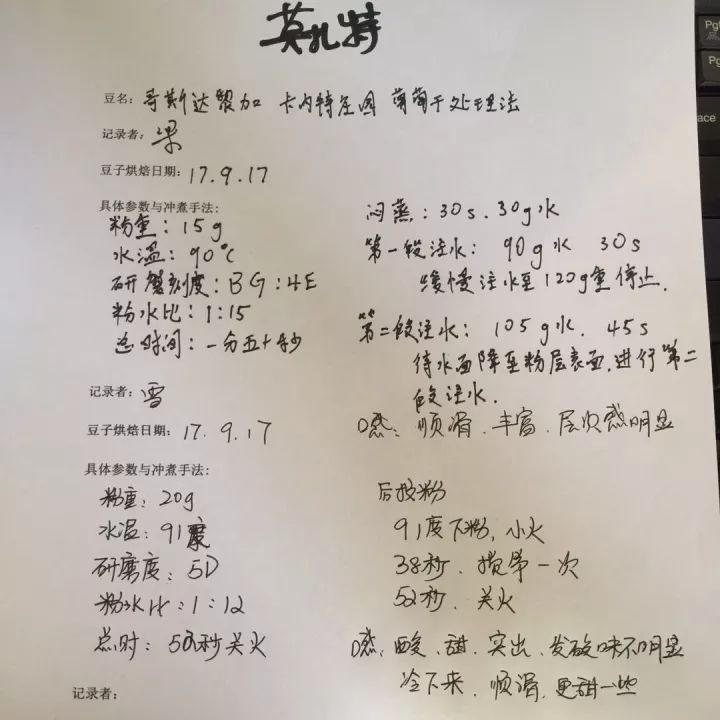 莫扎特
豆名：哥斯达黎加 卡内特庄园 葡萄干处理法
记录者：梁
豆子烘焙日期：17.9.17
具体参数与冲煮手法：
粉重：15g
水温：90℃
研磨刻度：BG：4E
粉水比：1:15
总时间：一分五十秒
闷蒸：30s、30g水
第一段注水：90g水 30s
缓慢注水至120g重停止.
第二段注水：105g水、45s
待水面降至粉层表面，进行第二
段注水.
口感：顺滑、丰富、层次感明显
记录者：雪
豆子烘焙日期：17.9.17
具体参数与冲煮手法：
粉重：20g
水温：91度
研磨度：5D
粉水比：1:12
总时：52秒关火
后投粉
91度下粉，小火
38秒、搅第一次
52秒、关火
口感：酸、甜、突出、发酸味不明显
冷下来、顺滑、更甜一些
记录者：
Pg
ace